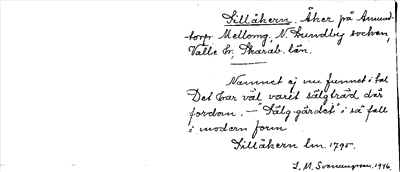 Silläkern. Åker på Amund-
torps Mellomg, N. Lundby socken,
Valle hr, Skarab. län.
Namnet ej nu funnet i tal
Det bar väl varit sälgträd där
fordom. – "Sälg-gärdet" i så fall
i modern form
Silläkern lm. 1795.
S. M. Svanungsson. 1946.